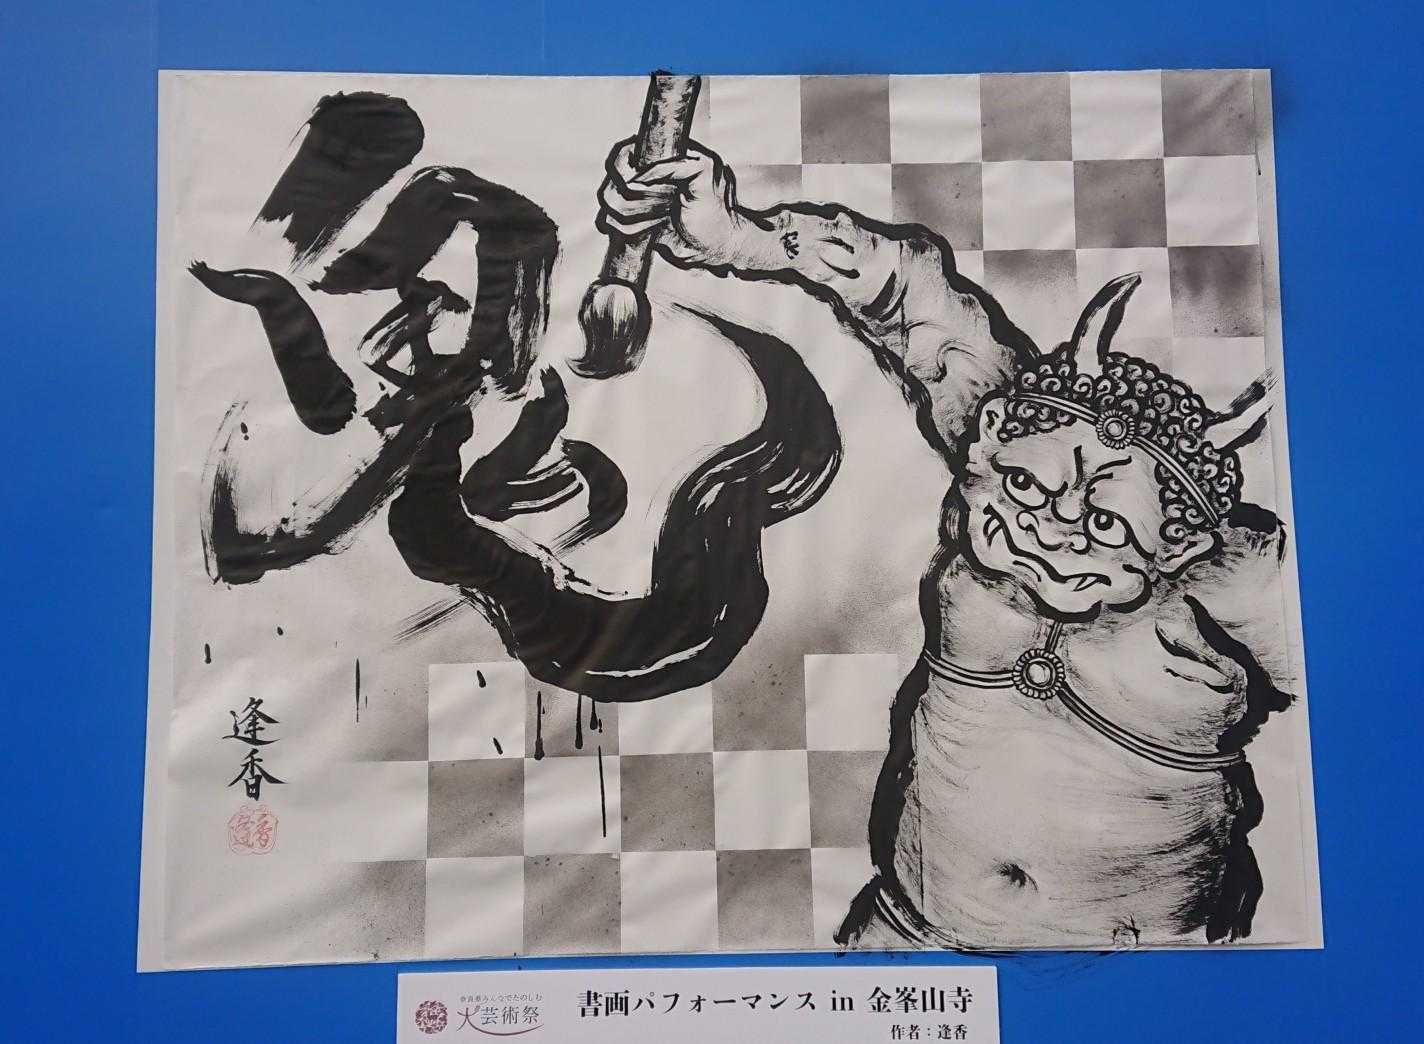 鬼
逢
香
奈良県みんなでたのしむ
大芸術祭
書画パフォーマンス in 金峯山寺
作者：逢香